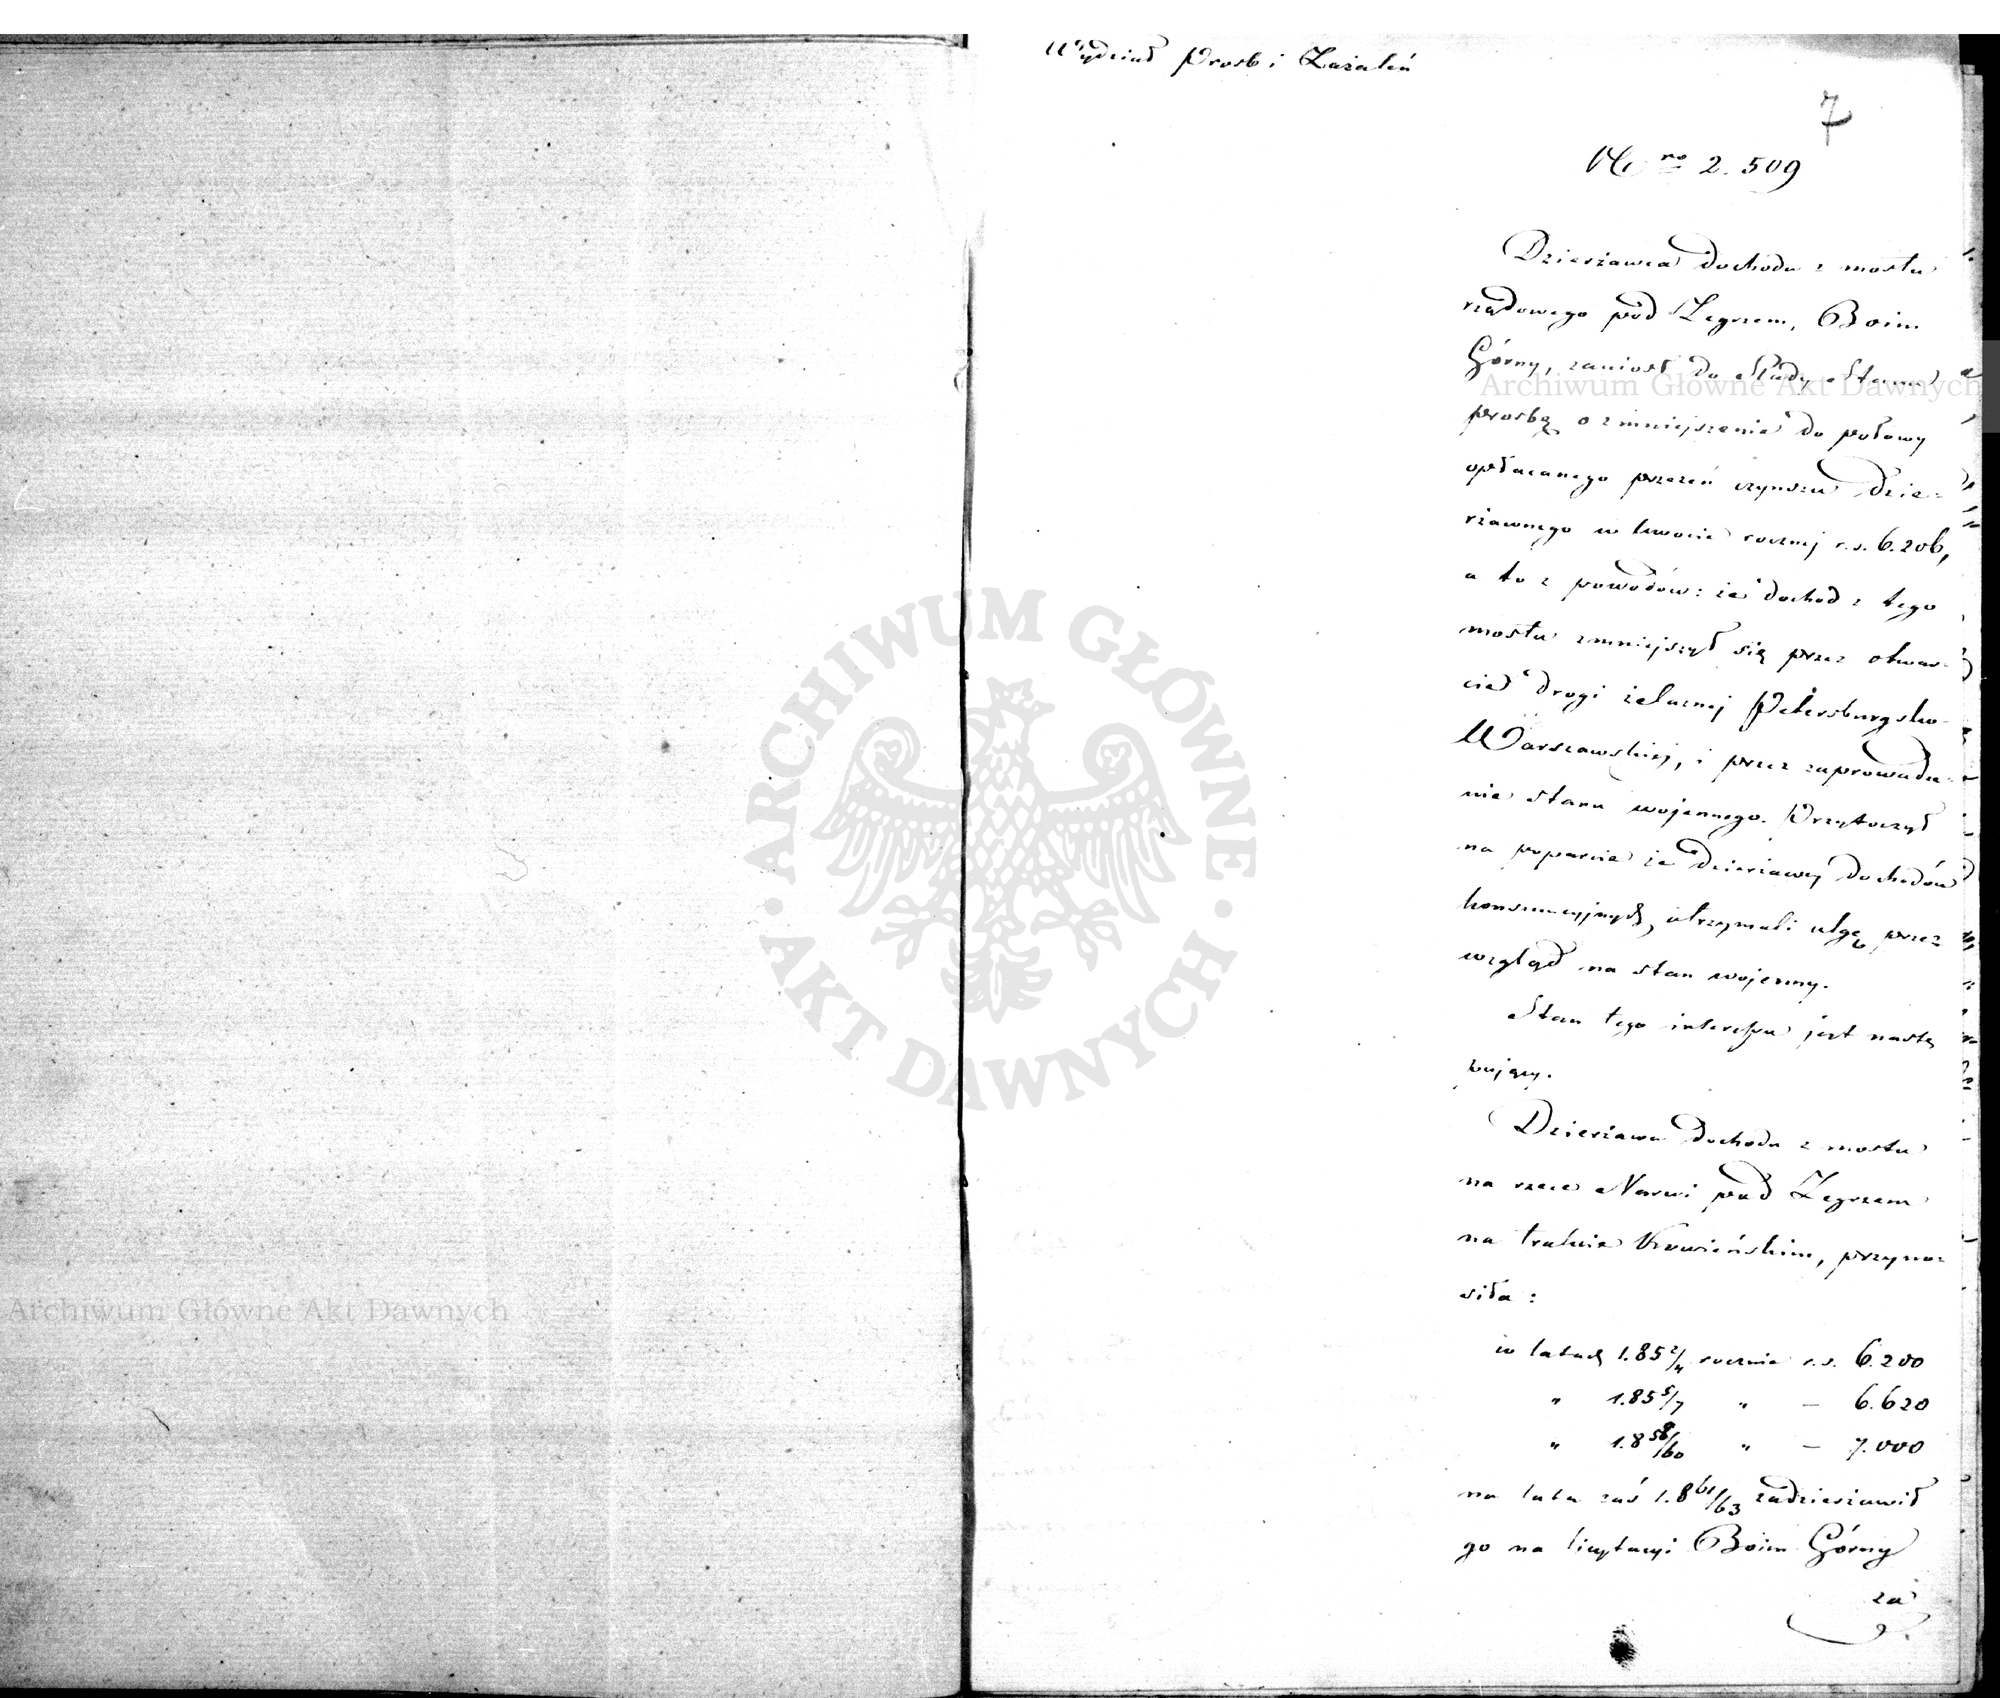 Wydział Prosb i Zażaleń
7
Nro 2.509
Dzierżawca dochodu z mostu
rządowego pod Zegrzem, Boim
Górny, zaniosł do Rady Stanu
Archiwum Główne Akt Dawnych
prosbę o zmniejszenie do połowy
opłacanego przezeń czynszu dzie-
rżawnego w kwocie rocznej r.s. 6.206,
a to z powodów: że dochod z tego
mostu zmniejszył się przez otwar-
cie drogi żelaznej Petersburgsko-
Warszawskiej, i przez zaprowadze-
nie stanu wojennego. Przytoczył
na poparcie że dzierżawcy dochodów
konsumcyjnych otrzymali ulgę przez
wzgląd na stan wojenny.
Stan tego interessu jest nastę
pujący.
Dzierżawa dochodu z mostu
na rzece Narwi pod Zegrzem
na trakcie Kowieńskim, przyno-
siła:
w latach 1.85 2/4 rocznie r.s. 6.200
" 1.85 5/7 " — 6.620
" 1.8 58/60 " — 7.000
na lata zaś 1.8 61/63 zadzierżawił
go na licytacyi Boim Górny
za
ARCHIWUM GŁÓWNE
• AKT DAWNYCH •
Archiwum Główne Akt Dawnych